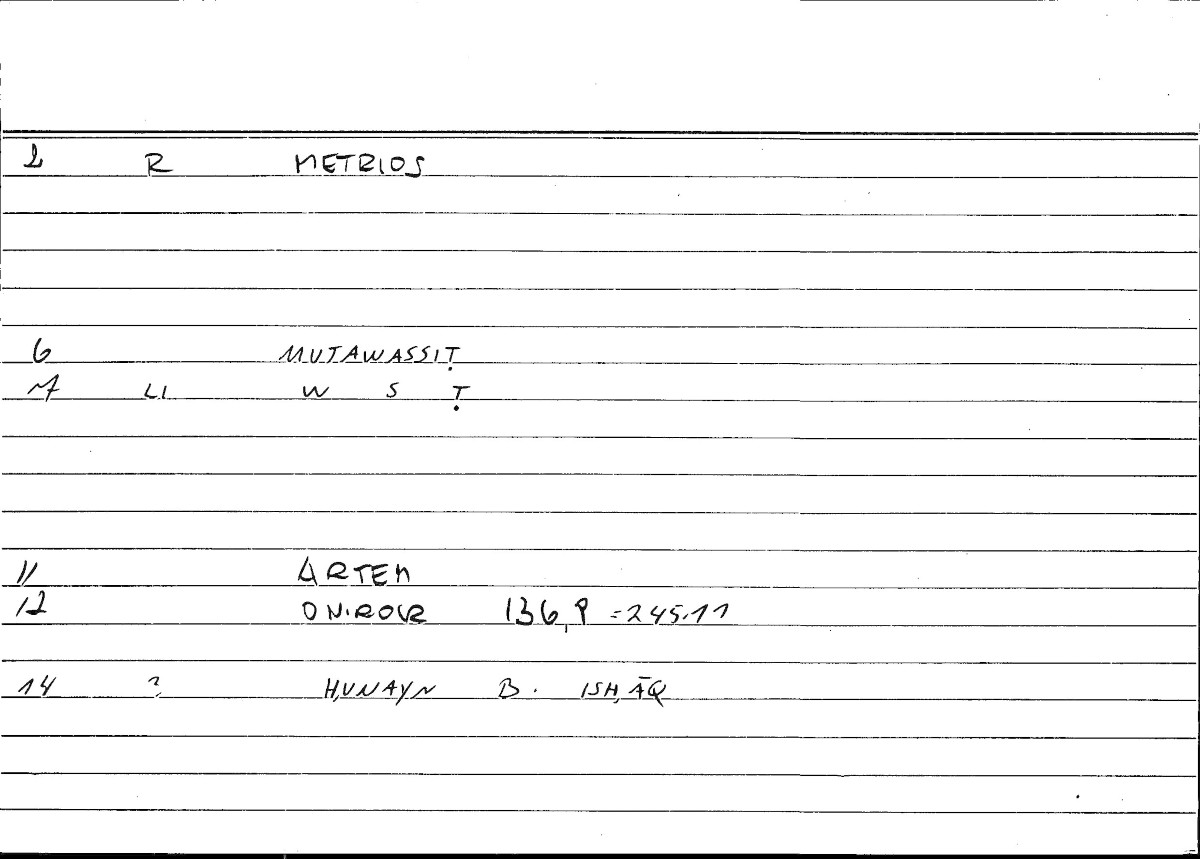 2 R METRIOS
6 MUTAWASSIṬ
7 LI W S Ṭ
11 ARTEM
12 ONIROCR 136,9 =245.11
14 ? ḤUNAYN B. ISḤĀQ